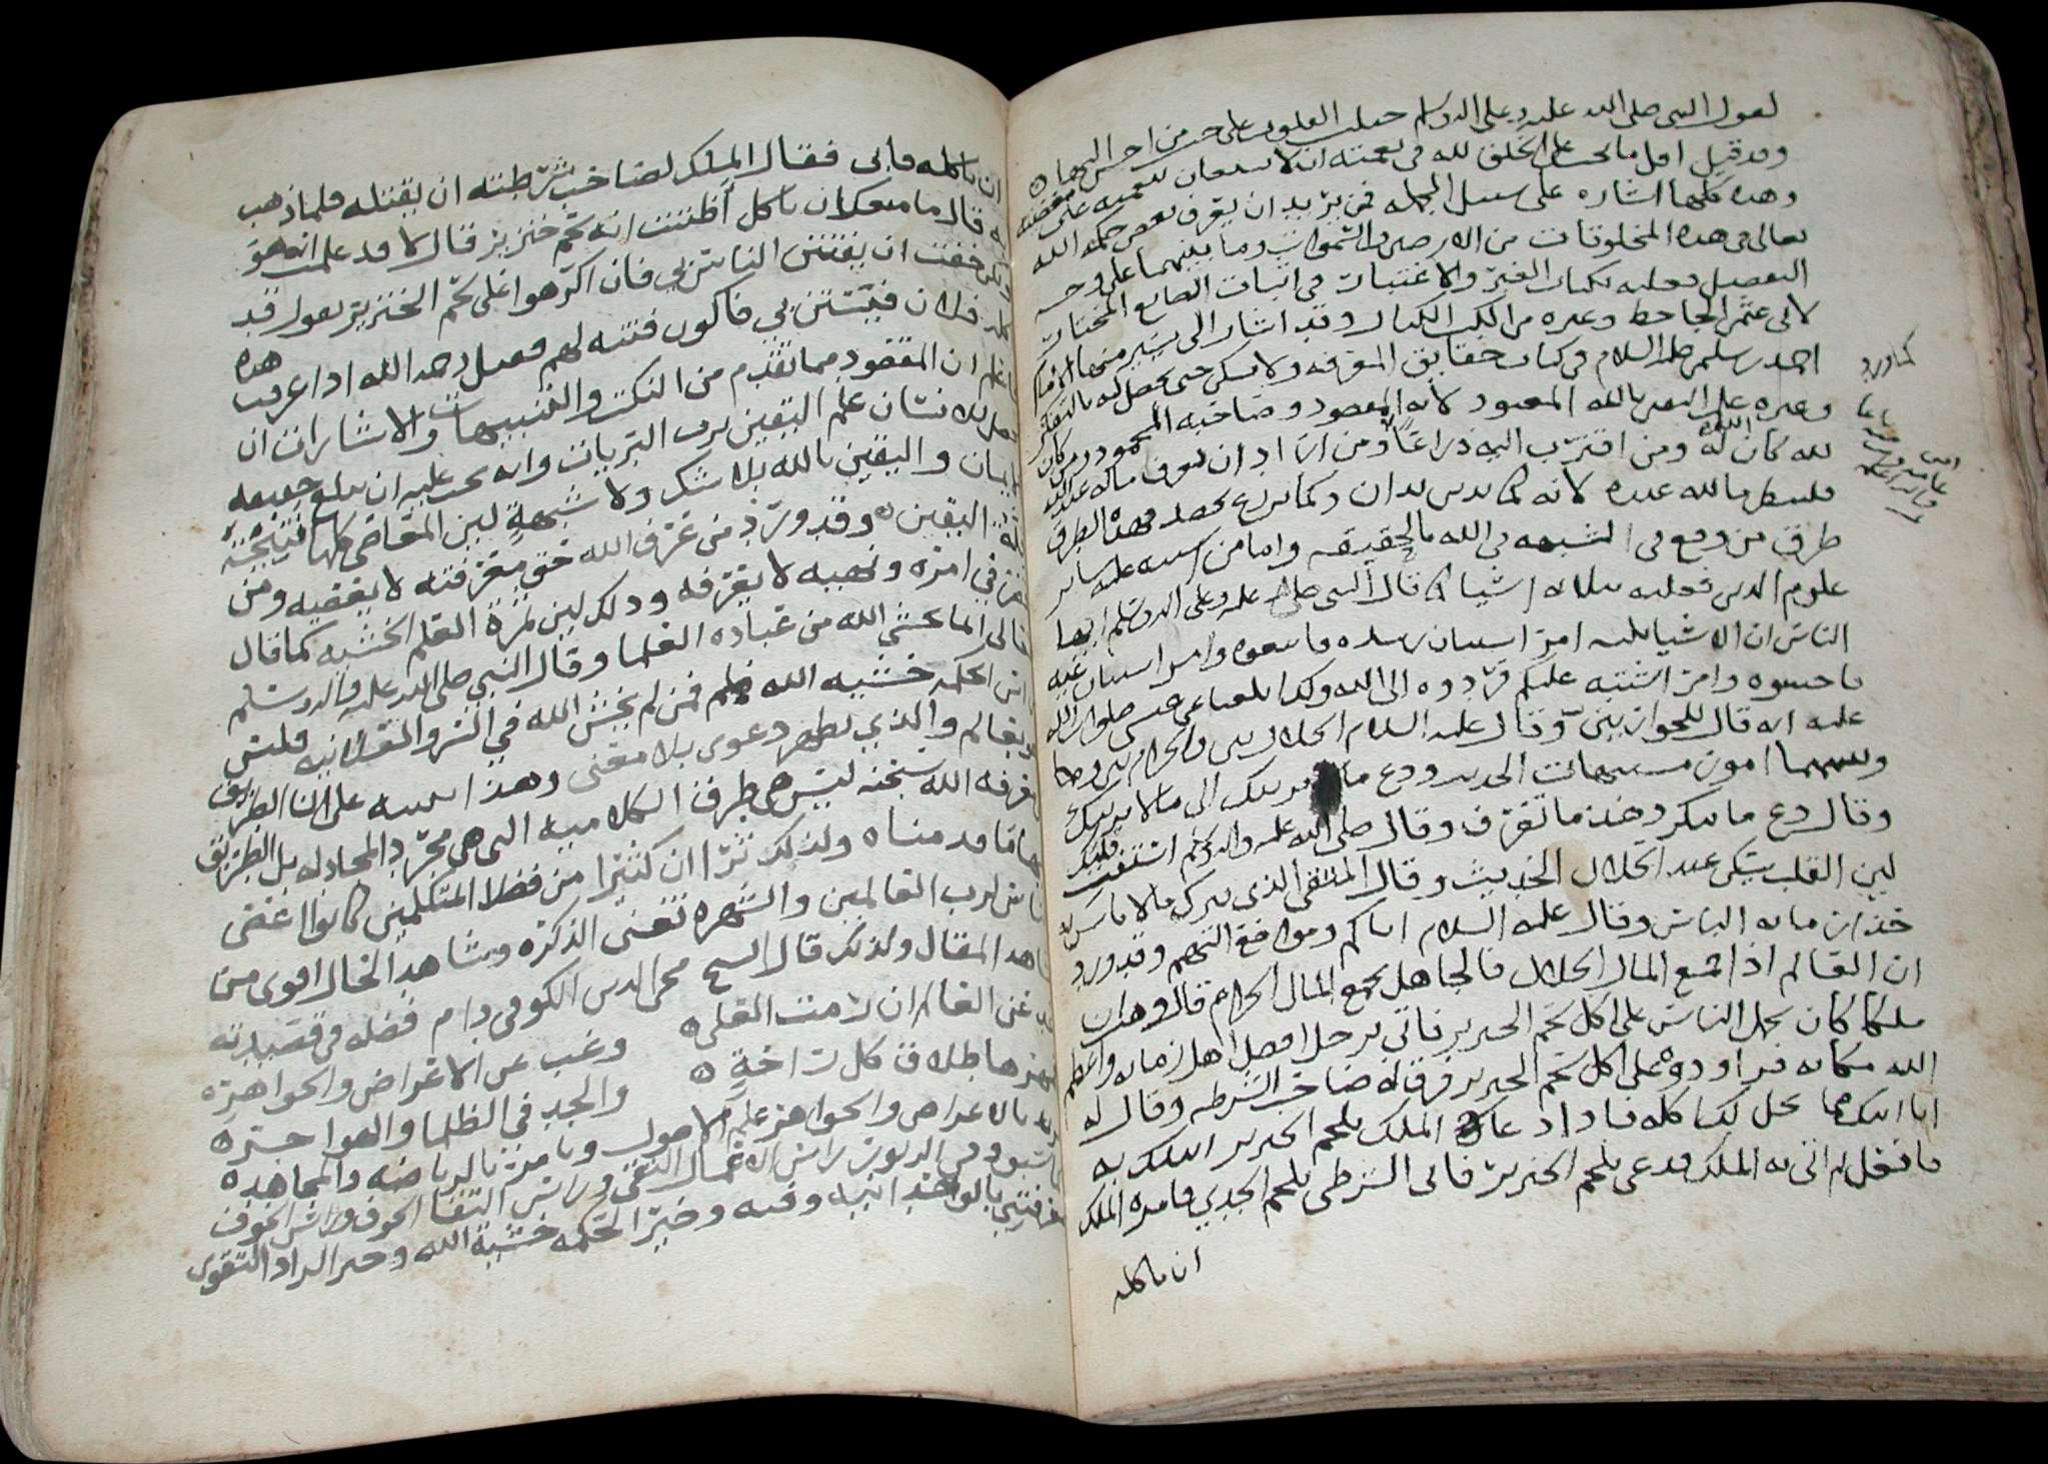 لقول النبي صلى الله عليه وعلى اله وسلم جبلت القلوب على حب من احسن اليها
وقد قيل اقل ما يجب على الخلق لله في نعمته ان لا يستعان بنعمته على معصيته
وهذه كلها اشاره على سبيل الجمله فمن يريد ان يعرف بعض حكمه الله
تعالى في هذه المخلوقات من الارض والسموات وما بينهما على وجه
التفصيل فعليه بكتاب العبر والاعتبارات في اثبات الصانع المختار
لابي عثمن الجاحظ وغيره من الكتب الكبار وقد اشار الى يسير منها الامام
احمد بن سليمن عليه السلام في كتاب حقايق المعرفه ولا يسكن حتى يحصل له بالتفكر
وغيره علم اليقين بالله المعبود لانه المقصود وصاحبه المحمود ومن كان
لله كان الله له ومن اقترب اليه ذراعا ومن اراد ان يعرف ماله عند الله
فلينظر ما لله عنده لانه كما يدين يدان وكما يزرع يحصد فهذه الطرق
طرق من وقع في الشبهه في الله بالحقيقه واما من
علوم الدين فعليه بثلاثه اشيا كما قال النبي صلى الله عليه وعلى اله وسلم ايها
الناس ان الاشيا ثلثه امر استبان رشده فاتبعوه وامر استبان غيه
فاجتنبوه وامر اشتبه عليكم فردوه الى الله وكذا بلغنا عن عيسى صلوات الله
عليه انه قال للحواريين وقال عليه السلام الحلال بين والحرام بين
وبينهما امور مشتبهات الحديث ودع ما يريبك الى ما لا يريبك
وقال دع ما تنكر وخذ ما تعرف وقال صلى الله عليه واله وسلم استفت قلبك
لين القلب يسكن عند الحلال الحديث وقال المتقي الذي يترك ما لا باس به
حذرا مما به الباس وقال عليه السلام اياكم ومواقع التهم وقد ورد
ان العالم اذا جمع المال الحلال فالجاهل يجمع المال الحرام قال وهب ان
ملكا كان يحمل الناس على اكل لحم الخنزير فاتي برجل افضل اهل زمانه واعظم
الله مكانه فراودوه على اكل لحم الخنزير فرق له صاحب الشرطه وقال له
انا اتيك بما يحل لك اكله فاذا دعا لك الملك بلحم الخنزير اتيتك به
فافعل ثم اتى به الملك فدعى بلحم الخنزير فاتى الشرطي بلحم الجدي فامره الملك
ان ياكله
كما ورد
ان ياكله فابى فقال الملك لصاحب شرطته ان يقتله فلما ذهب
به قال ما منعك ان تاكل أظننت انه لحم خنزير قال لا قد علمت انه هو
ولكن خفت ان يفتتن الناس بي فان اكرهوا على لحم الخنزير يقول قد
اكله فلان فيتسنن بي فاكون فتنه لهم فقتل رحمه الله اذا عرفت هذه
فاعلم ان المقصود مما تقدم من النكت والتنبيهات والاشارات ان
يحصل للانسان علم اليقين برب البريات وانه يجب عليه ان يبلغ جميعه
الايمان واليقين بالله بلا شك ولا شبهة لين المعاصي كلها نتيجة
قلة اليقين وقد ورد من عرف الله حق معرفته لا يعصيه ومن
في امره ونهيه لا يعرفه وذلك لين ثمرة العلم الخشيه كما قال
تعالى انما يخشى الله من عباده العلما وقال النبي صلى الله عليه واله وسلم
راس الحكمه خشيه الله فمن لم يخش الله في السر والعلانيه فليس
بعالم والذي يظهر دعوى بلا معنى وهذا تنبيه على ان الطريق
لمعرفه الله سبحنه ليس هي طرق الكلاميه التي هي مجرد المجادله بل الطريق
ما قدمناه ولذلك ترا ان كثيرا من فضلا المتكلمين كانوا اعصى
الناس لرب العالمين والشهره تغني الذكره وشاهد الحال اقوى من
شاهد المقال ولذلك قال الشيخ محي الدين الكوفي دام فضله في قصيدته
وغب عن العالم ان رمت العلى وغب عن الاعراض والجواهره
مهرها طلاق كل راحة والجد في الظلما والهواجره
يريد بالاعراض والجواهر علم الاصول ويامر بالرياضه والمجاهده
وفي الزبور راس الاعمال التقى وراس التقا الخوف وراس الخوف
معرفتي بالواحدانيه وفيه وخير الحكمه خشية الله وخير الزاد التقوى